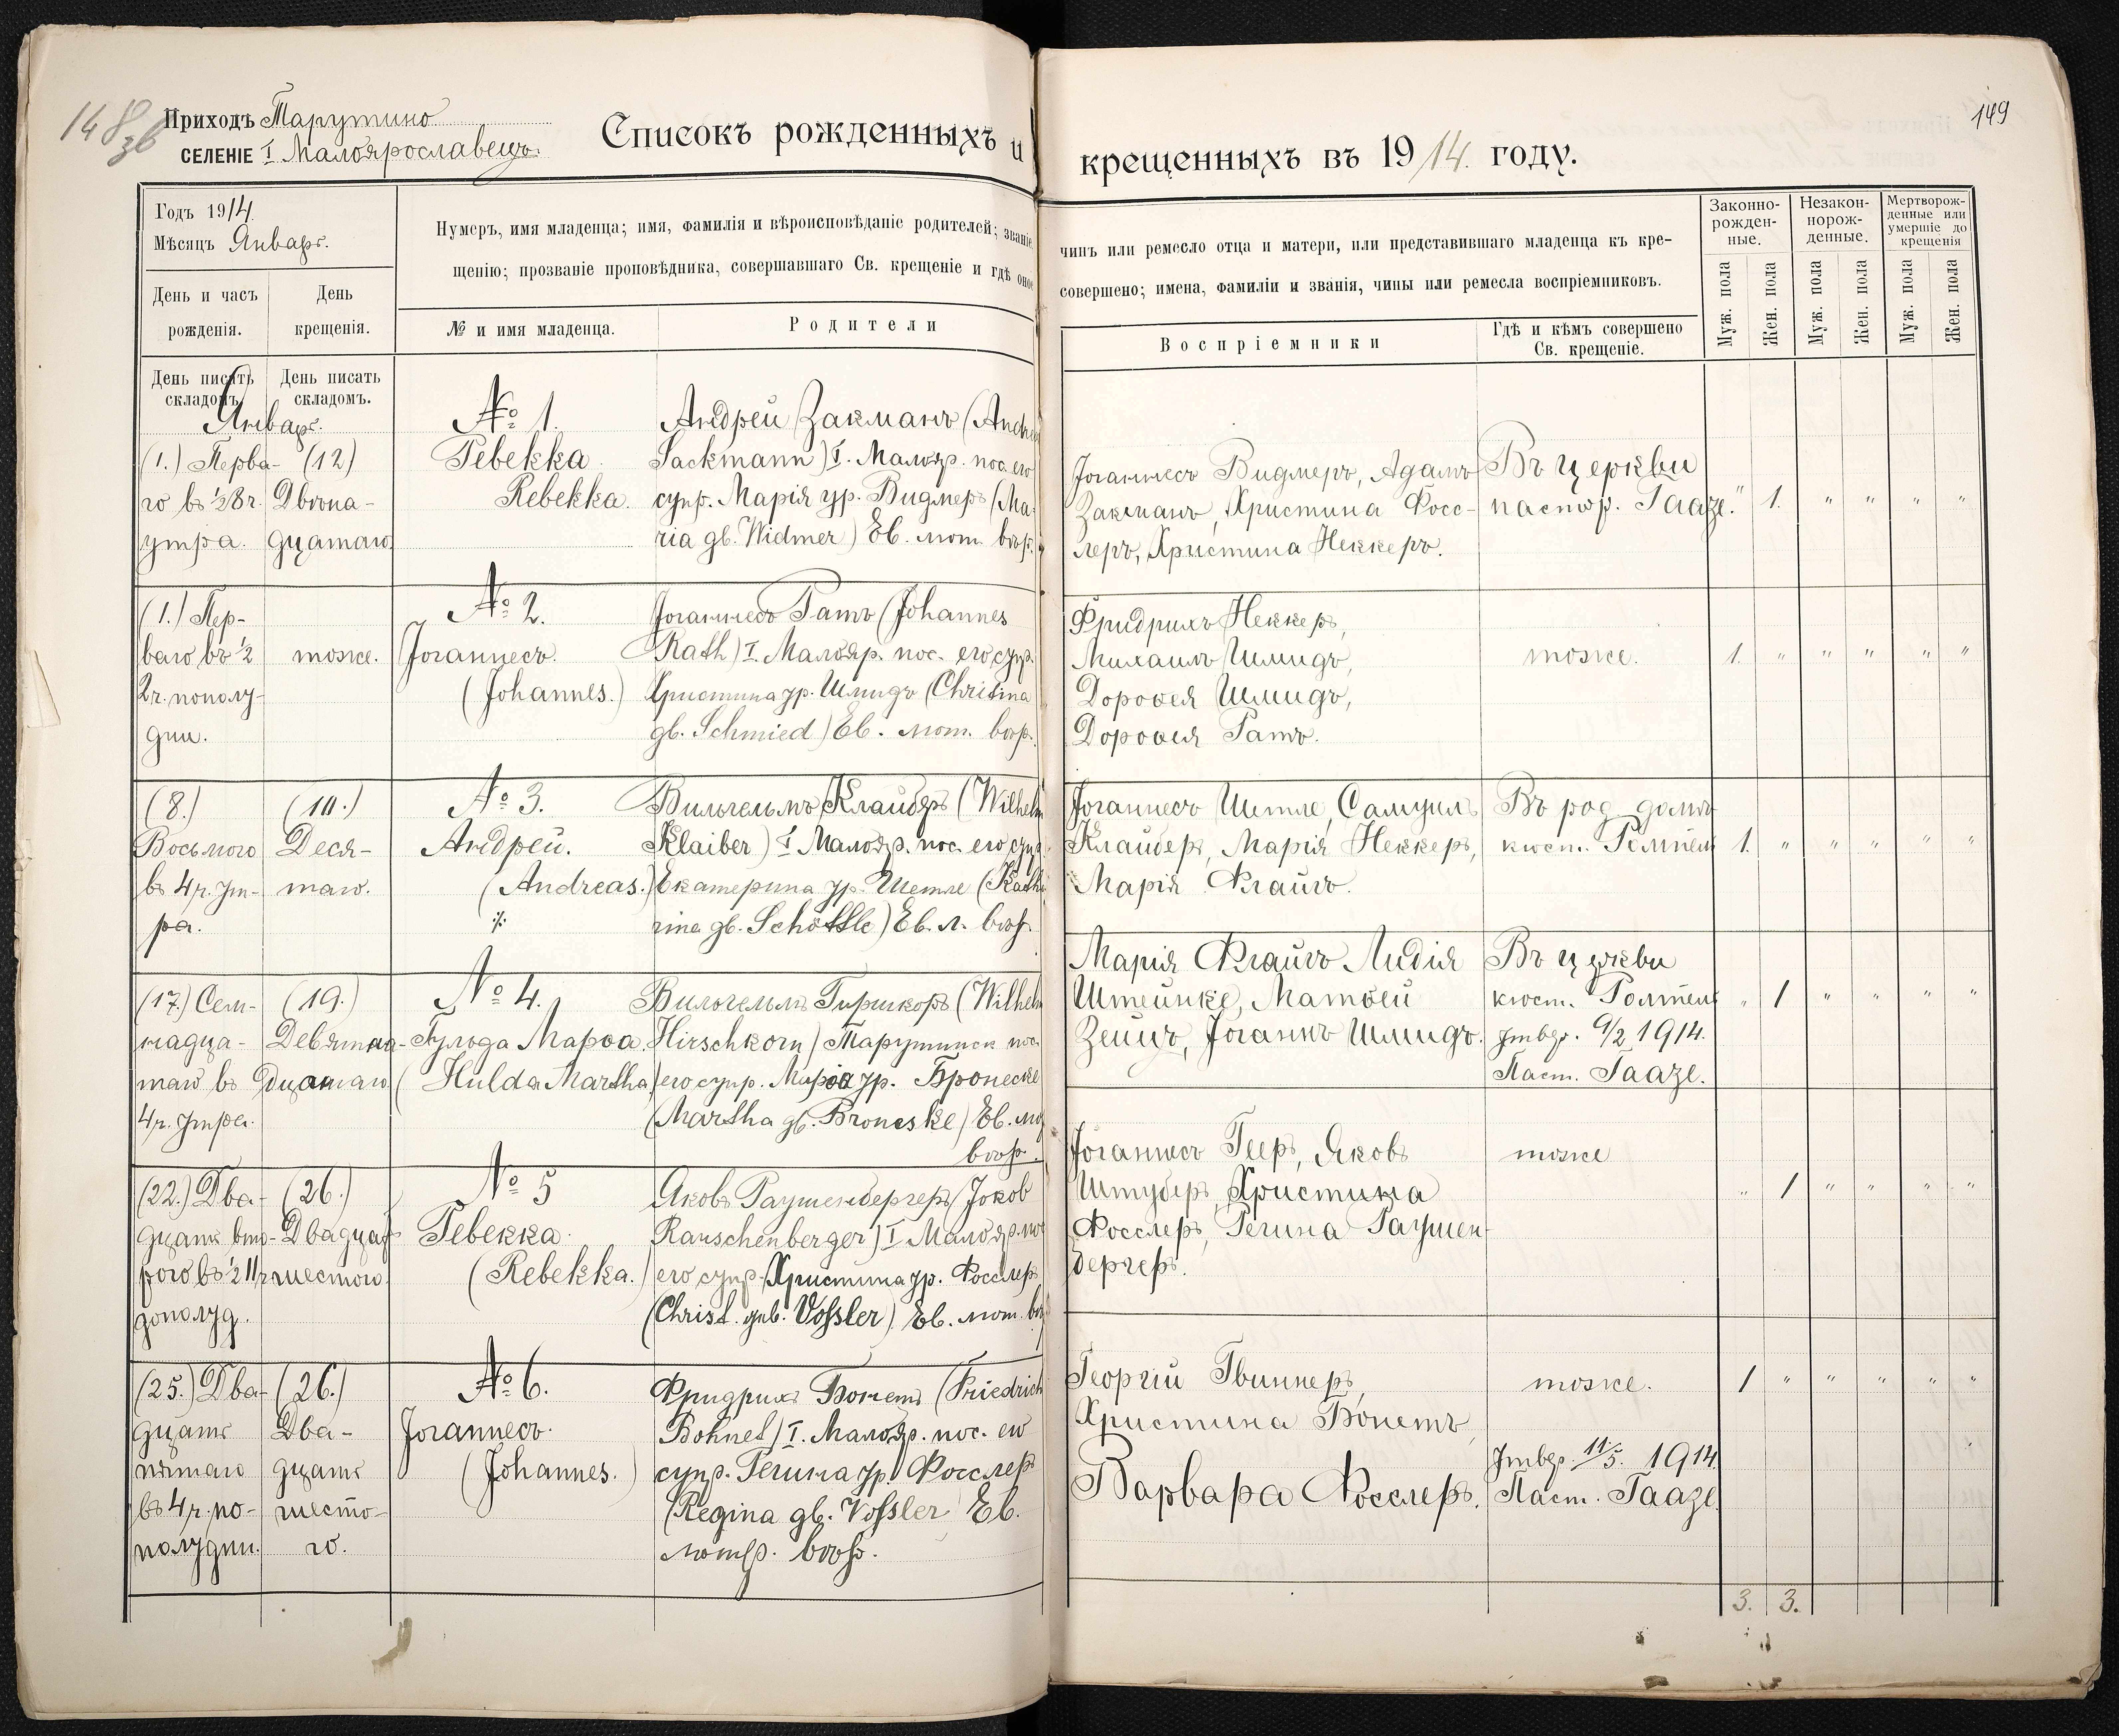 148 зв
149
Приходъ Тарутино
СЕЛЕНІЕ I Малоярославецъ.
Списокъ рожденныхъ и крещенныхъ въ 1914. году.
Годъ 1914.
Мѣсяцъ Январь.
День и часъ рожденія.
День крещенія.
Нумеръ, имя младенца; имя, фамилія и вѣроисповѣданіе родителей; званіе,
чинъ или ремесло отца и матери, или представившаго младенца къ кре-
щенію; прозваніе проповѣдника, совершавшаго Св. крещеніе и гдѣ оное
совершено; имена, фамиліи и званія, чины или ремесла воспріемниковъ.
№ и имя младенца.
Родители
Воспріемники
Гдѣ и кѣмъ совершено
Св. крещеніе.
Законно-
рожден-
ные.
Незакон-
норож-
денные.
Мертворож-
денные или
умершіе до
крещенія
Муж. пола
Жен. пола
Муж. пола
Жен. пола
Муж. пола
Жен. пола
День писать
складомъ.
День писать
складомъ.
Январь.
(1.) Перва-
го въ ½8 ч.
утра.
(12)
Двѣна-
дцатаго
№ 1.
Ревекка
Rebekka.
Андрей Закманъ (Andre
Sackmann) I. Малояр. пос. его
супр. Марія ур. Видмеръ (Ma-
ria gb. Widmer) Ев. лют. вѣр.
Іоганнесъ Видмеръ, Адамъ
Закманъ, Христина Фосс-
леръ, Христина Неккеръ.
Въ церкви
пастор. Гаазе.
" 1. " " " "
(1.) Пер-
ваго въ ½
2 ч. пополу-
дни.
тоже.
№ 2.
Іоганнесъ.
(Johannes.)
Іоганнесъ Ратъ (Johannes
Rath) I. Малояр. пос. его супр.
Христина ур. Шмидъ (Christina
gb. Schmied) Ев. лют. вѣр.
Фридрихъ Неккеръ,
Михаилъ Шмидъ,
Доротея Шмидъ,
Доротея Ратъ.
тоже.
1. " " " " "
(8.)
Восьмого
въ 4 ч. ут-
ра.
(10.)
Деся-
таго.
№ 3.
Андрей.
(Andreas.)
Вильгельмъ Клайберъ (Wilhelm
Klaiber) I Малояр. пос. его супр.
Екатерина ур. Шетле (Kath
rina gb. Schöttle) Ев. л. вѣр.
Іоганнесъ Шетле, Самуилъ
Клайберъ, Марія Неккеръ,
Марія Флайгъ.
Въ род. домѣ
кюст.
1. " " " " "
(17.) Сем-
надца-
таго въ
4 ч. утра.
(19.)
Девятна-
дцатаго
№ 4.
Гульда Марѳа.
(Hulda Martha)
Вильгельмъ Гиршкорнъ (Wilhelm
Hirschkorn) Тарутинск. пос.
его супр. Марѳа ур. Бронеске
(Martha gb. Broneske) Ев. лют
вѣр.
Марія Флайгъ Лидія
Штейнке, Матвей
Зейцъ, Іоганнъ Шмидъ.
Въ церкви
кюст.
утвер. 9/2 1914.
Паст. Гаазе.
" 1 " " " "
(22.) Два-
дцать вто-
рого въ ½ 11 ч
дополуд.
(26.)
Двадцать
шестого.
№ 5
Ревекка.
(Rebekka.)
Яковъ Раушенбергеръ (Jokob
Rauschenberger) I Малояр. пос
его супр. Христина ур. Фосслеръ
(Christ. геб. Vossler) Ев. лют. вѣр
Іоганнесъ Гееръ, Яковъ
Штуберъ, Христина
Фосслеръ, Регина Раушен-
бергеръ.
тоже
" 1 " " " "
(25.) Два-
дцать
пятаго
въ 4 ч. по-
полудни.
(26.)
Два-
дцать
шесто-
го.
№ 6.
Іоганнесъ.
(Johannes.)
Фридрихъ Бонетъ (Friedrich
Bohnet) I. Малояр. пос. его
супр. Регина ур. Фосслеръ
(Regina gb. Vossler Ев.
лютер. вѣр.
Георгій Гвиннеръ,
Христина Бонетъ,
Варвара Фосслеръ.
тоже.
Утвер. 11/5. 1914.
Паст. Гаазе.
1 " " " " "
3. 3.